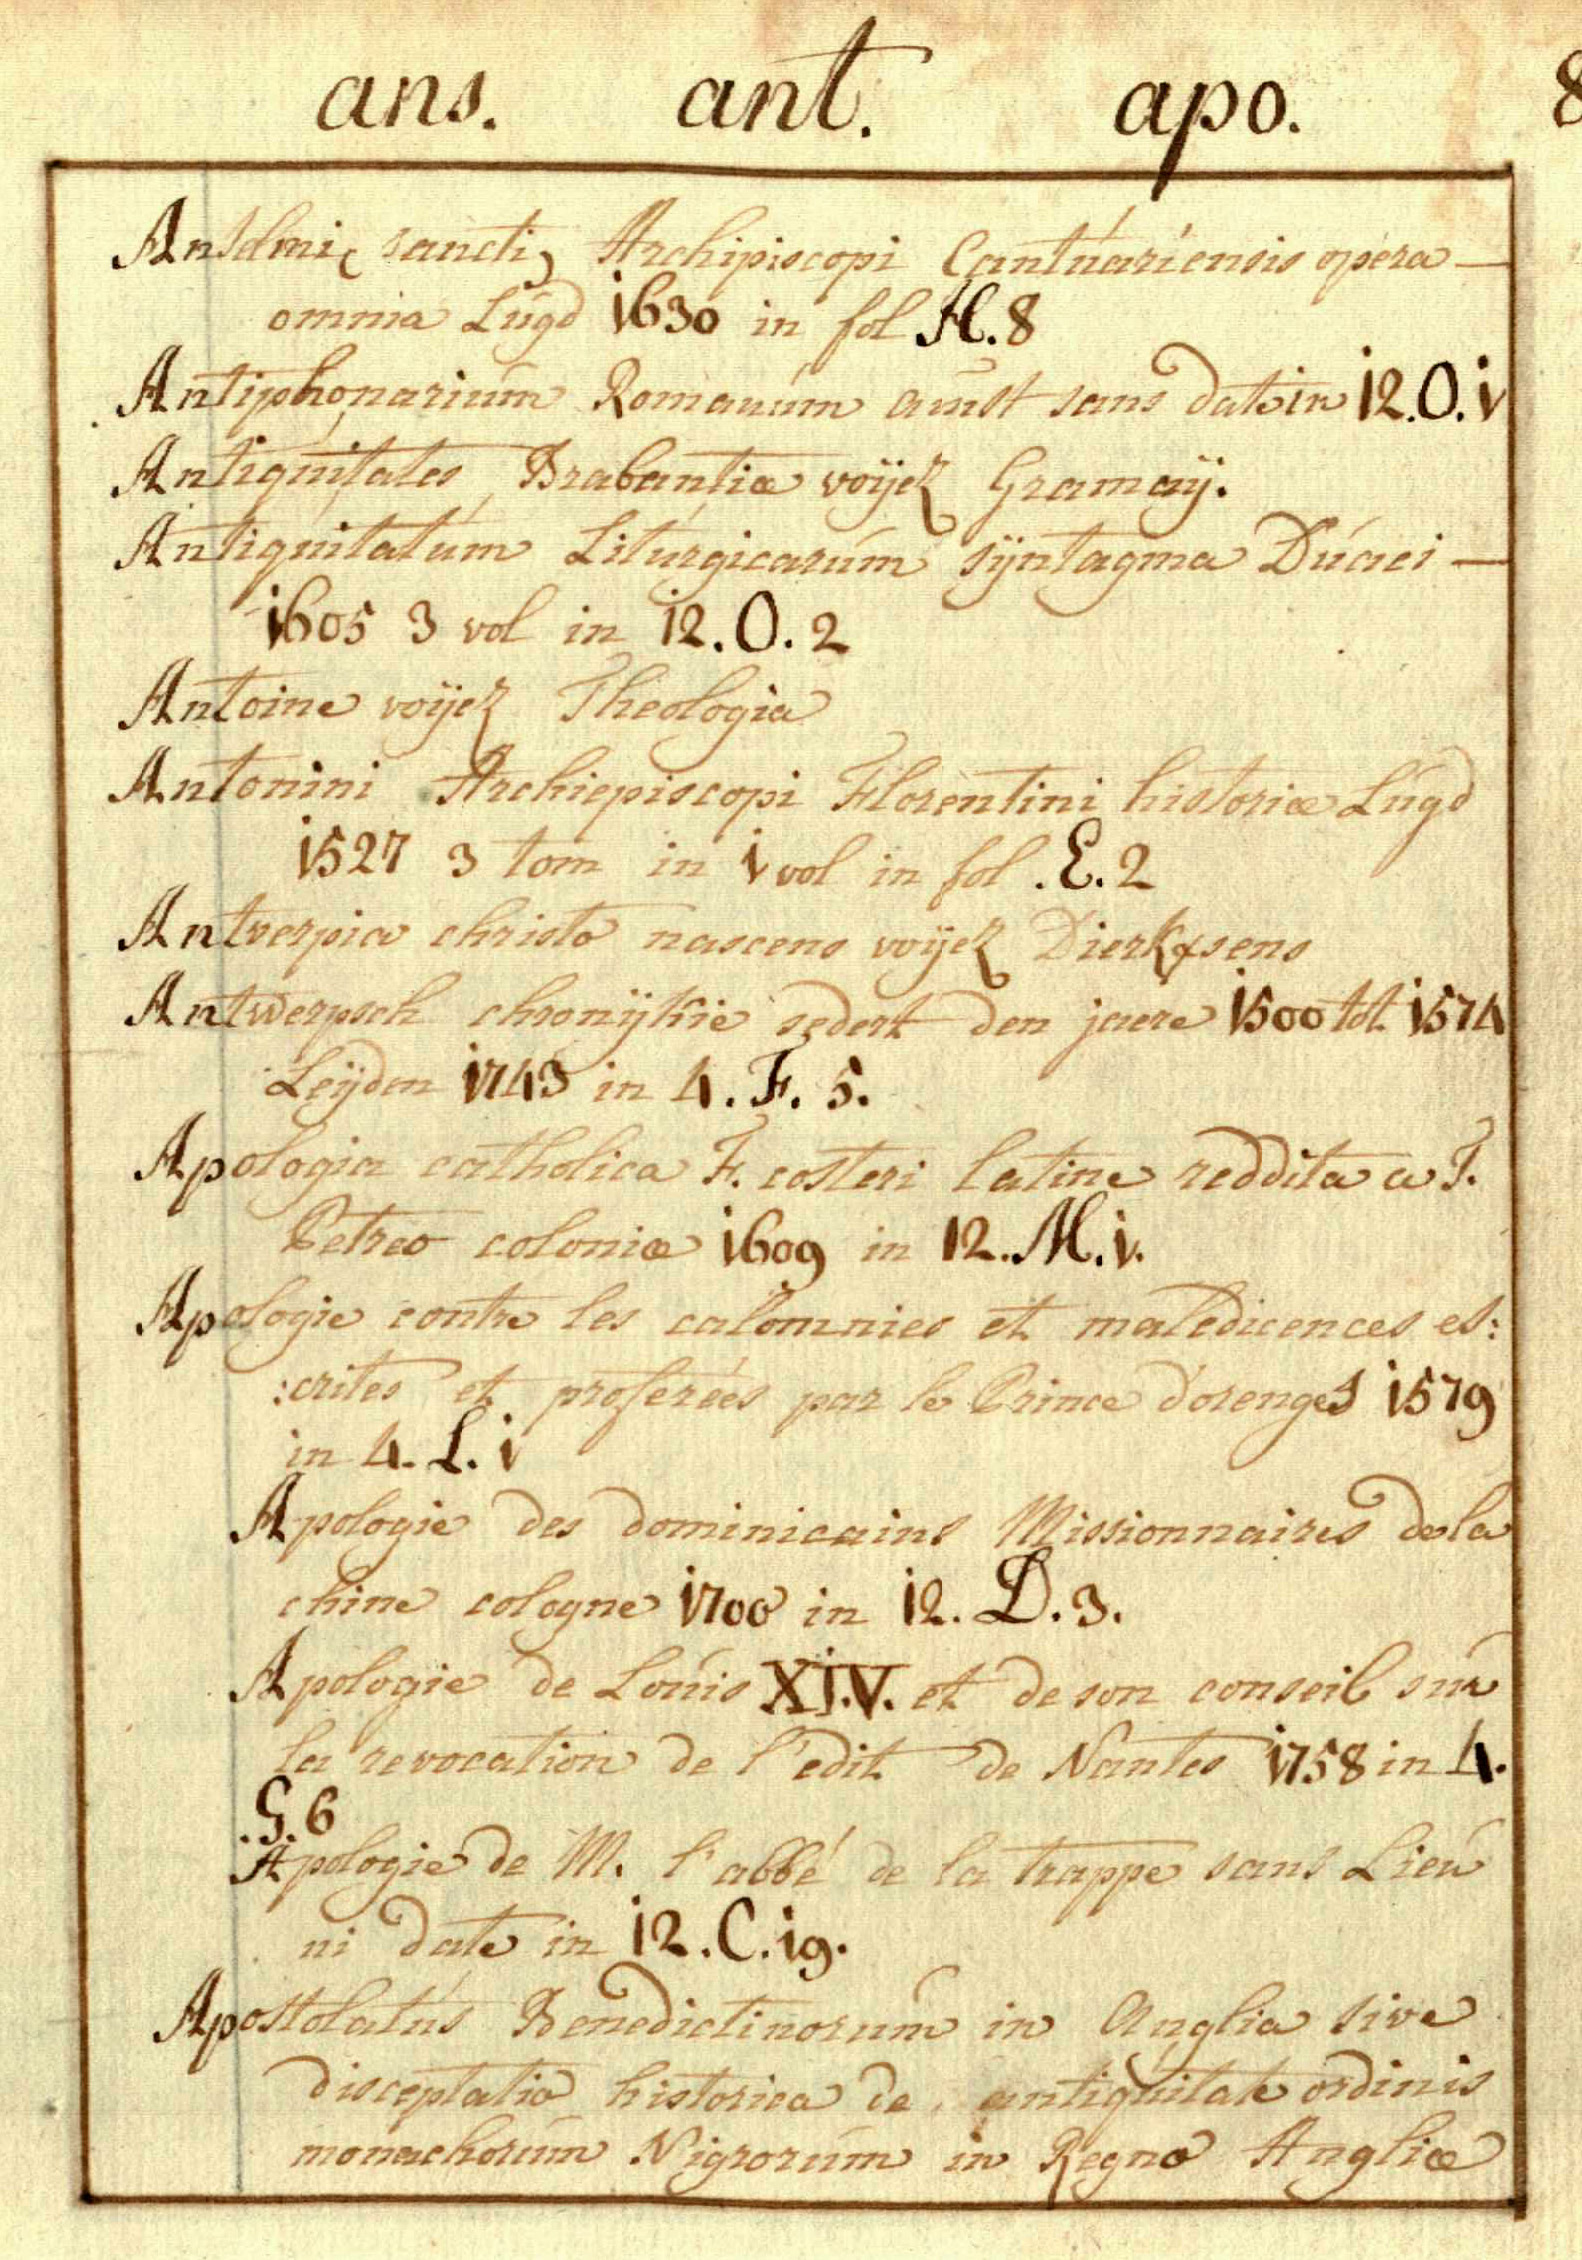 ans. ant. apo. 8
Anselmi (sancti) Archipiscopi Cantúariensis opera —
omnia Lúgd 1630 in fol H. 8
Antiphonariúm Romanúm amst sans date in 12. O. 1
Antiqúitates Brabantiæ voÿez Gramaÿ.
Antiqúitatúm Litúrgicarúm sÿntagma Dúaci —
1605 3 vol in 12. O. 2
Antoine voÿez Theologia
Antonini Archiepiscopi Florentini historiæ Lúgd
1527 3 tom in 1 vol in fol . E. 2
Antverpia christo nascens voÿez Dierkxsens
Antwerpsch chronÿkie sedert den jaere 1500 tot 1574
Leÿden 1743 in 4. F. 5.
Apologia catholica F. costeri latine reddita a T.
Petreo coloniæ 1609 in 12. M. 1.
Apologie contre les calomnies et maledicences es:
:crites et proferées par le Prince d'orenges 1579
in 4. L. 1
Apologie des dominicains Missionnaires de la
chine cologne 1700 in 12. D. 3.
Apologie de Loúis XIV. et de son conseil súr
la revocation de l'edit de Nantes 1758 in 4.
. G. 6
Apologie de M. l'abbé de la trappe sans Lieú
ni date in 12. C. 19.
Apostolatús Benedictinorúm in Anglia sive
disceptatio historica de antiqúitate ordinis
monachorúm Nigrorúm in Regno Angliæ